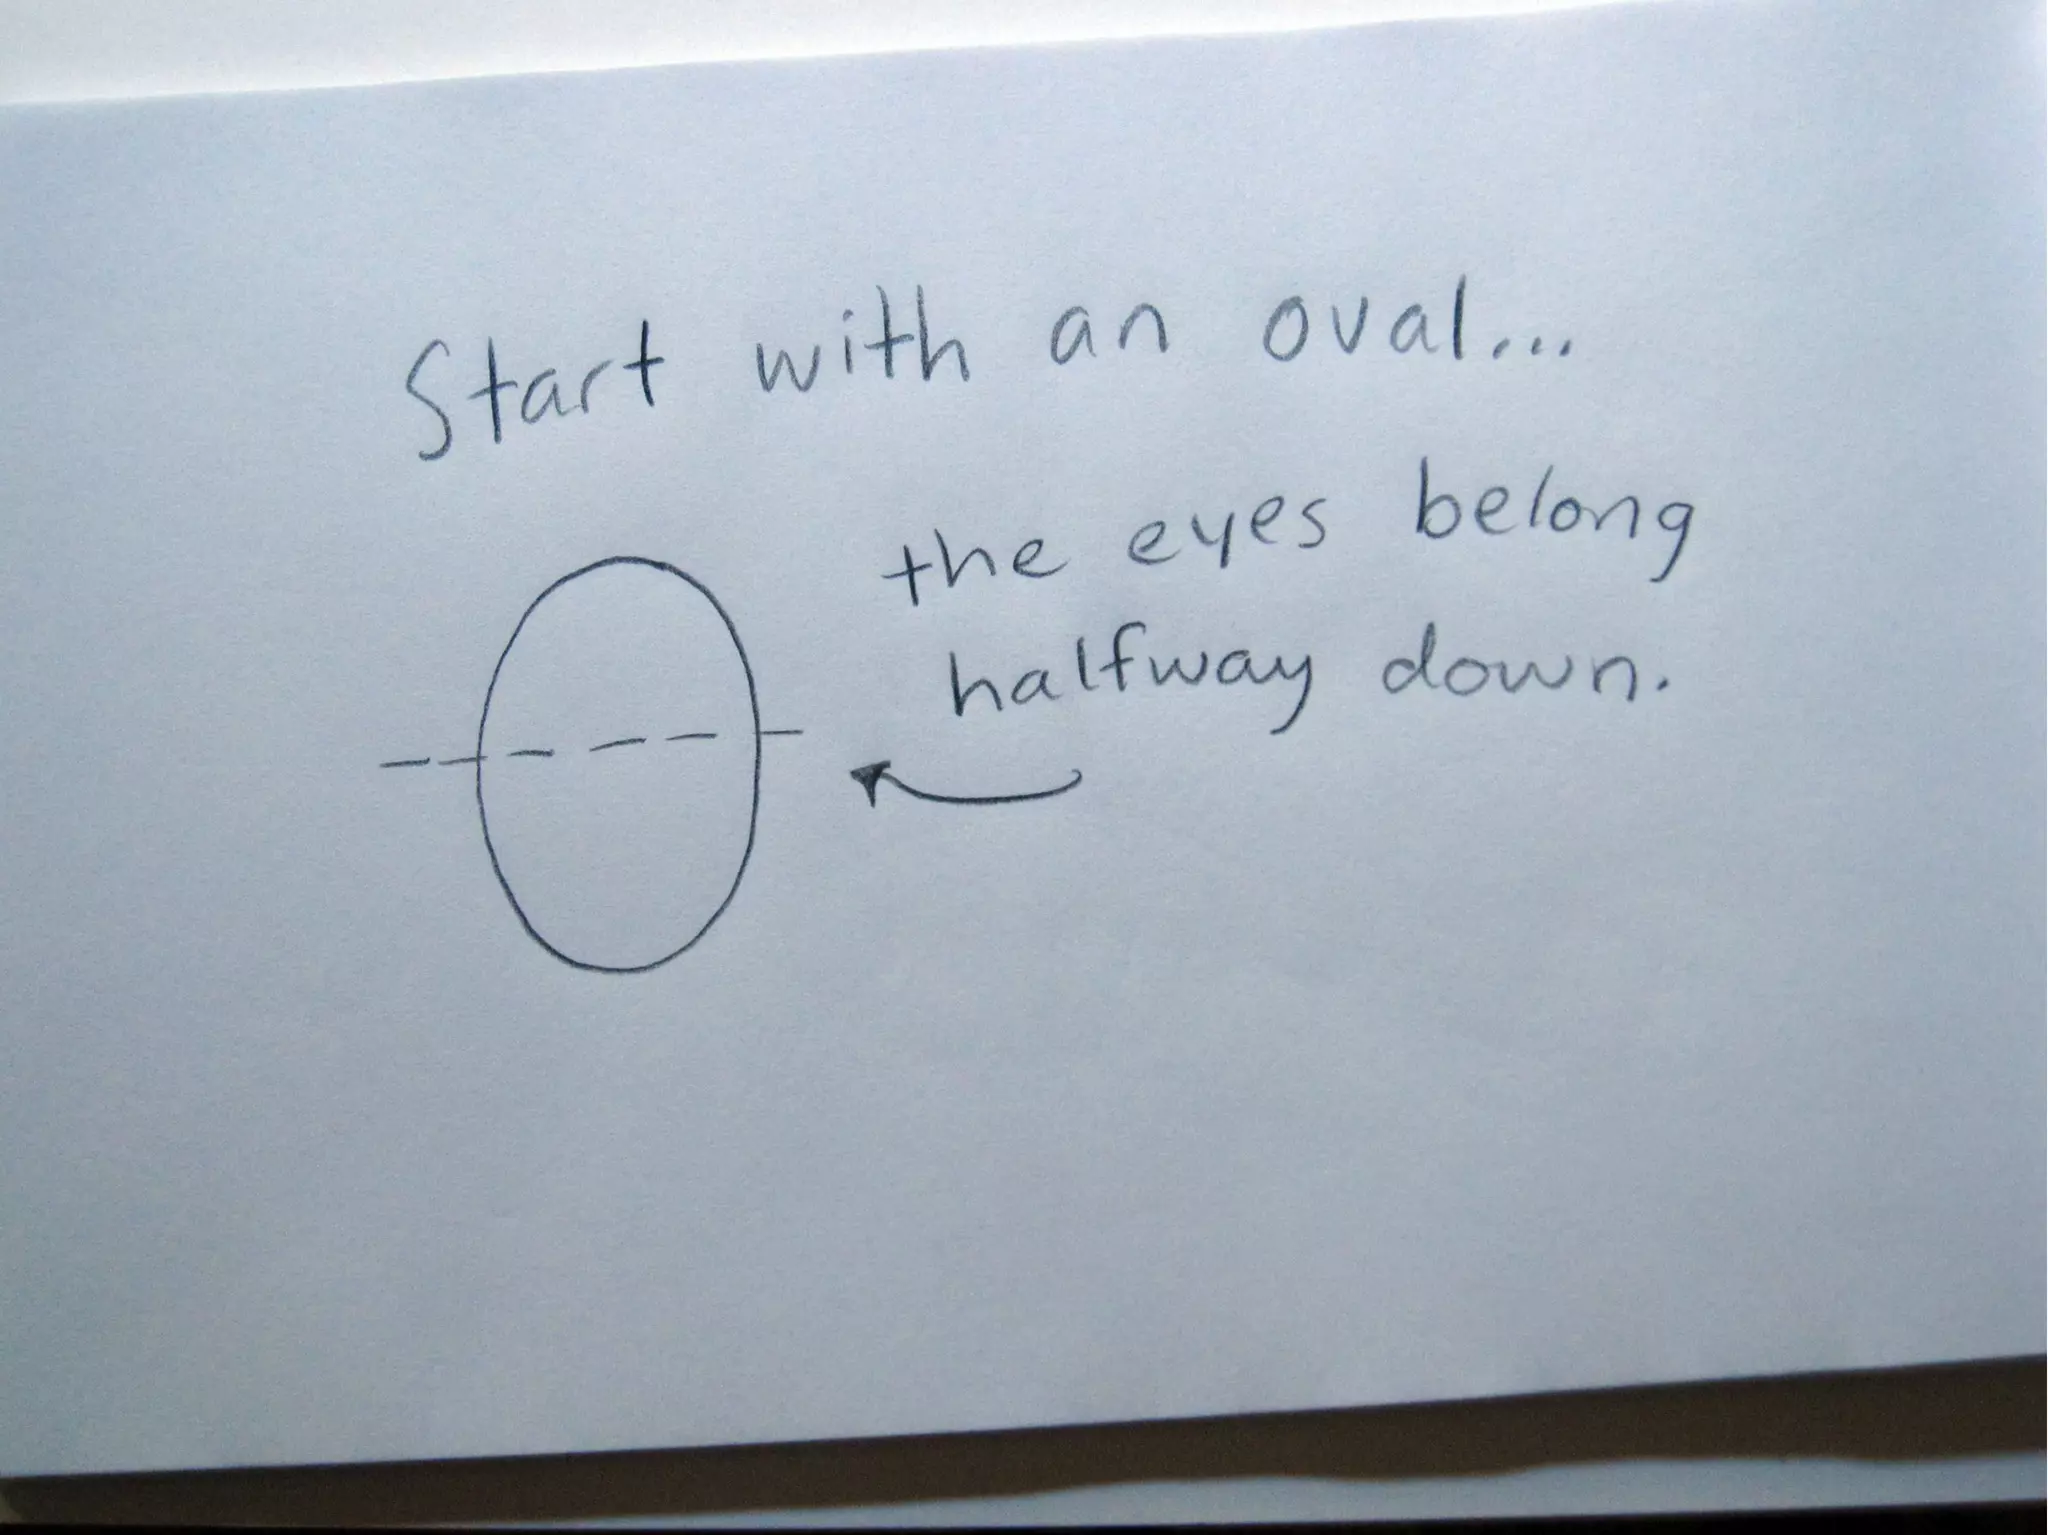 Start with an oval...
the eyes belong
halfway down.